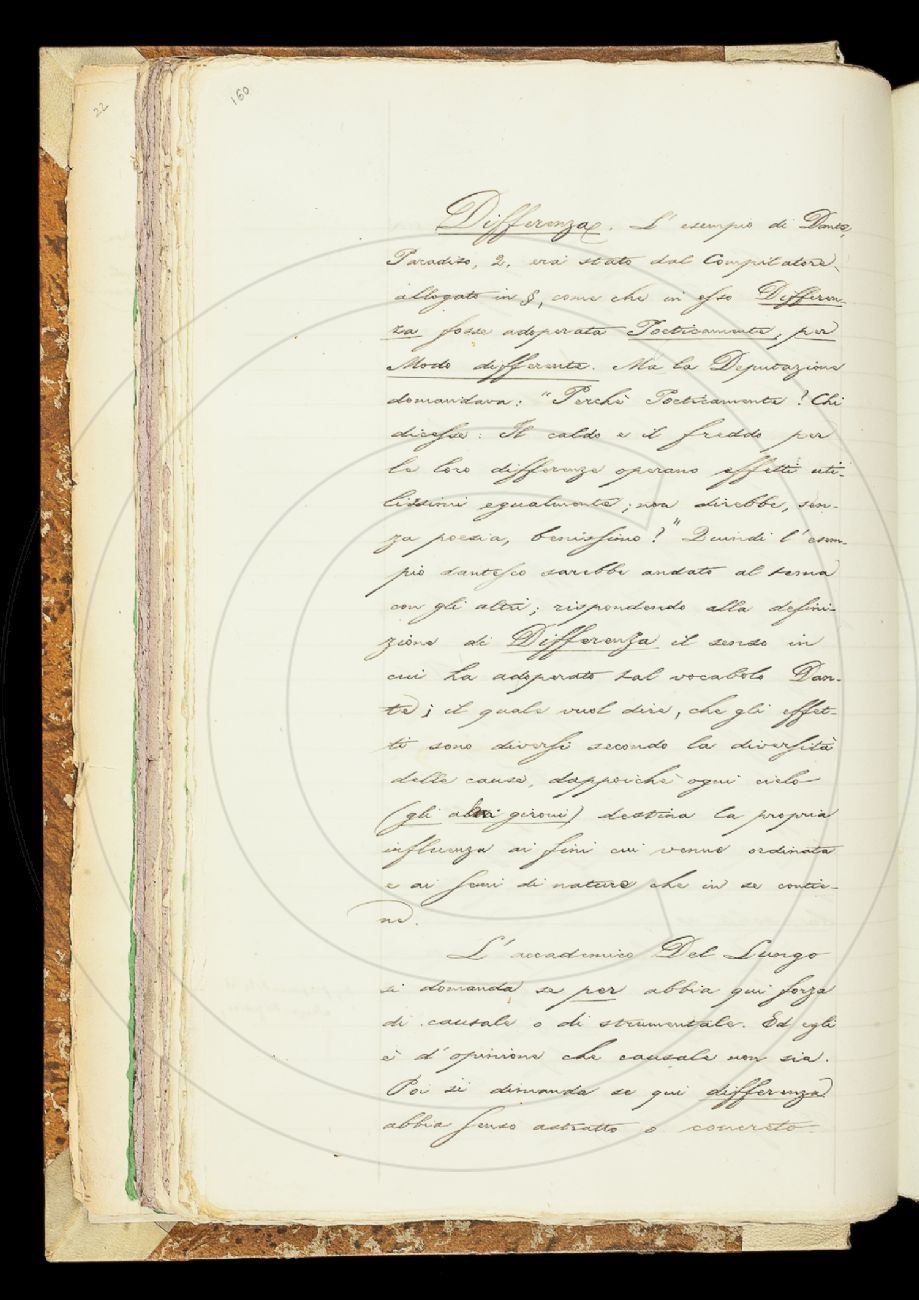 22
160
Differenza. L'esempio di Dante,
Paradiso, 2. era stato dal Compilatore
allegato in §, come che in esso Differen-
za fosse adoperata Poeticamente, per
Modo differente. Ma la Deputazione
domandava: "Perchè Poeticamente? Chi
dicesse: Il caldo e il freddo per
le loro differenze operano effetti uti-
lissimi egualmente, non direbbe, sen-
za poesia, benissimo?" Quindi l'esem-
pio dantesco sarebbe andato al tema
con gli altri; rispondendo alla defini-
zione di Differenza il senso in
cui ha adoperato tal vocabolo Dan-
te; il quale vuol dire, che gli effet-
ti sono diversi secondo la diversità
delle cause, dappoichè ogni cielo
(gli altri gironi) destina la propria
influenza ai fini cui venne ordinata
e ai semi di natura che in se contie-
ne.
L'accademico Del Lungo
si domanda se per abbia qui forza
di causale o di strumentale. Ed egli
è d'opinione che causale non sia.
Poi si dimanda se qui differenza
abbia senso astratto o concreto.